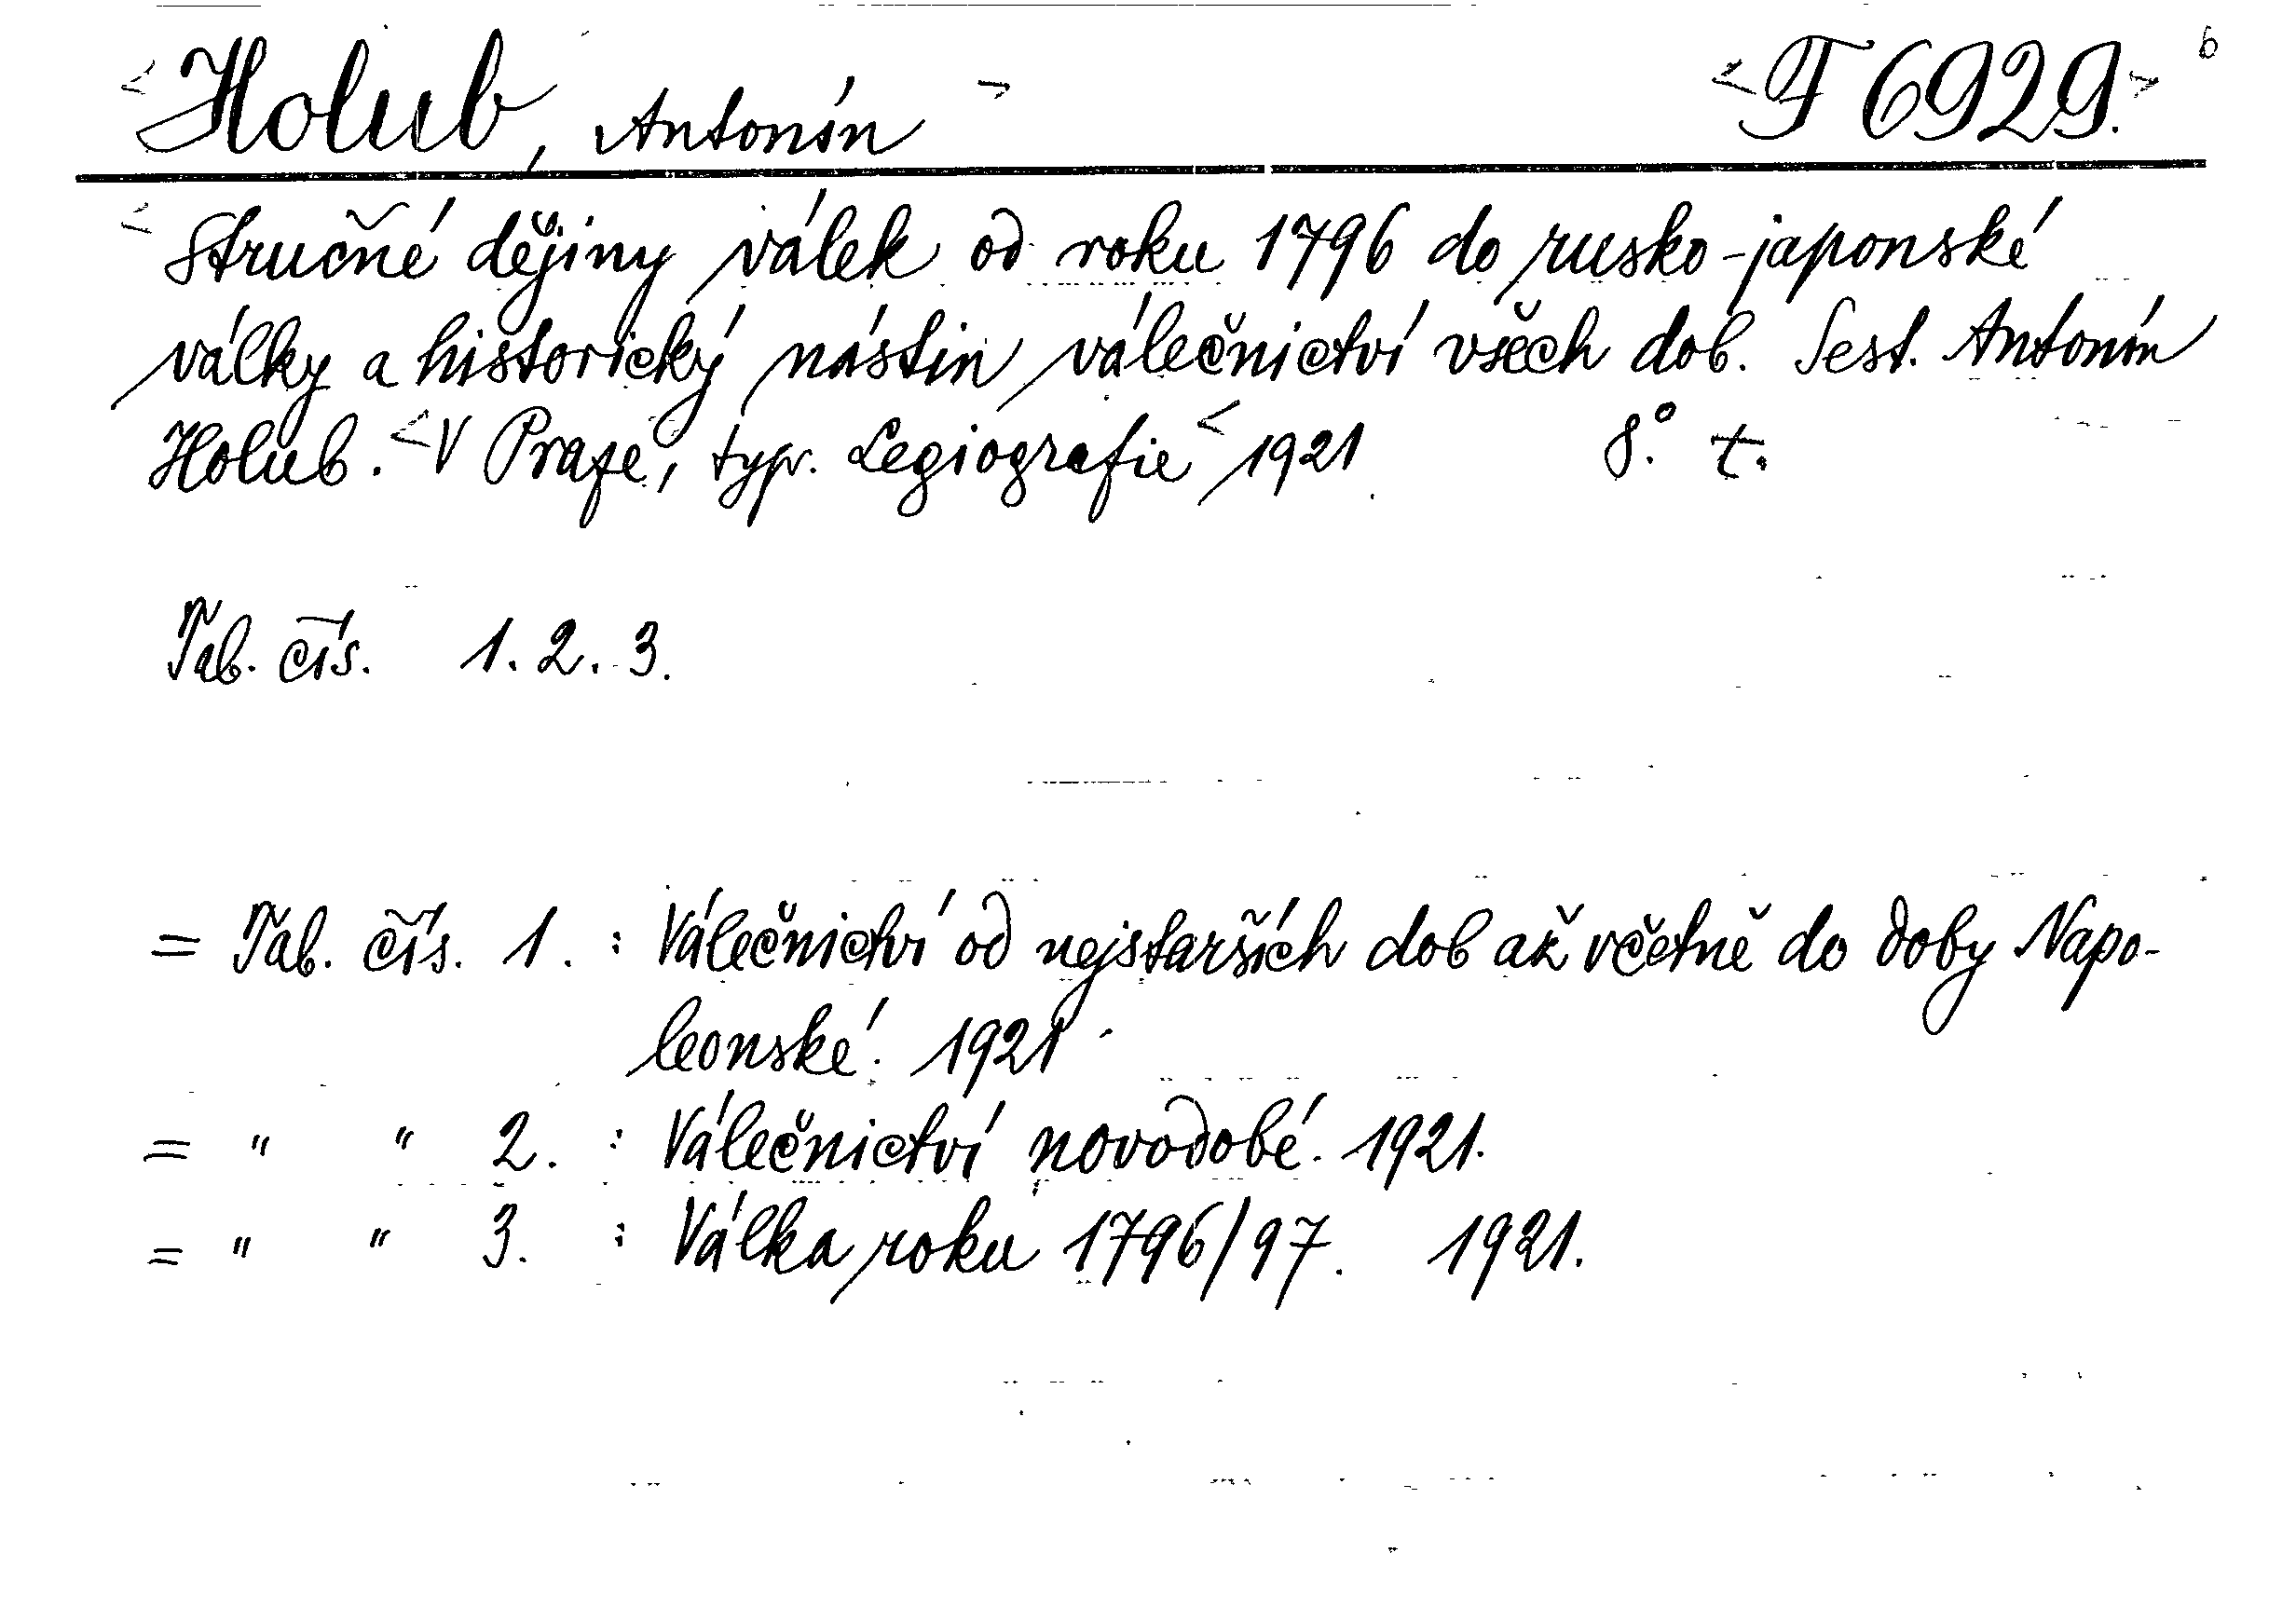 < Holub, Antonín > < F 6929. > b
< Stručné dějiny válek od roku 1796 do rusko-japonské
války a historický nástin válečnictví všech dob. Sest. Antonín
Holub. < V Praze, typ. Legiografie < 1921 8.° t.
Tab. čís. 1. 2. 3.
= Tab. čís. 1. : Válečnictví od nejstarších dob až včetně do doby Napo-
leonské. 1921
= " " 2. : Válečnictví novodobé. 1921.
= " " 3. : Válka roku 1796/97. 1921.